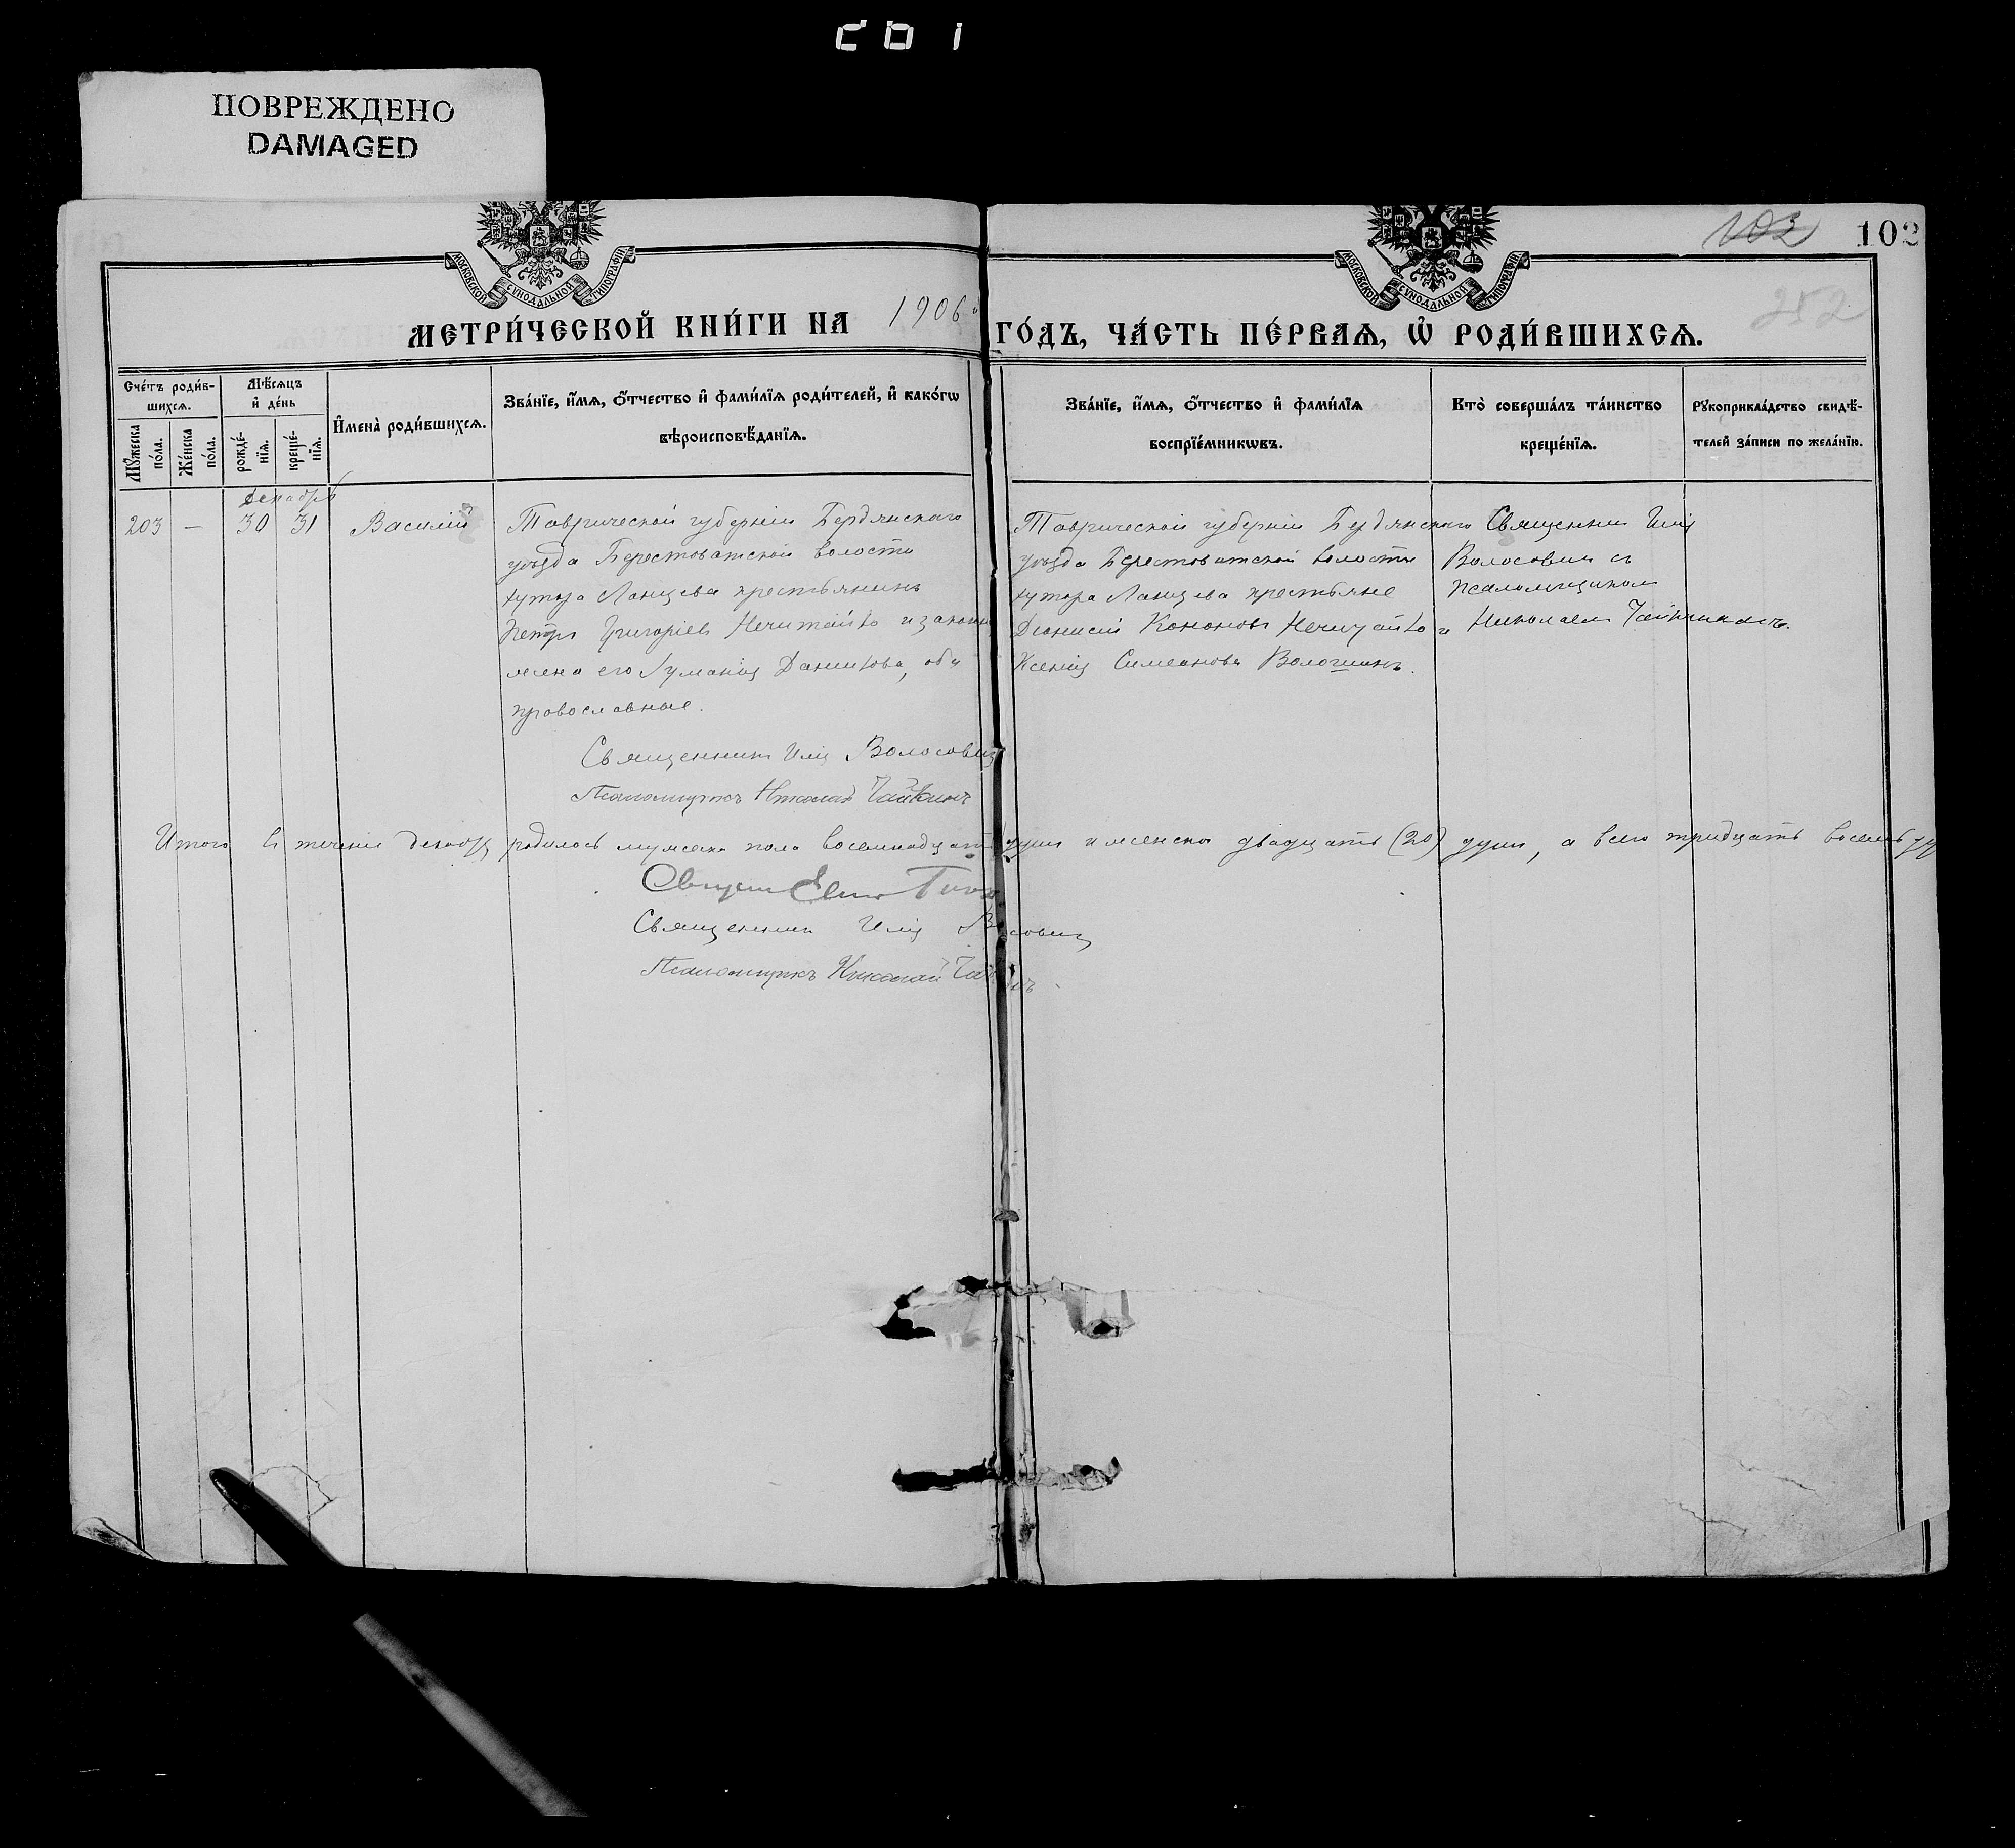 201
ПОВРЕЖДЕНО
DAMAGED
МОСКОВСКОЙ СѴНОДАЛЬНОЙ ТИПОГРАФІИ
МОСКОВСКОЙ СѴНОДАЛЬНОЙ ТИПОГРАФІИ
102 102
252
МЕТРИ́ЧЕСКОЙ КНИ́ГИ НА 1906й ГО́ДЪ, ЧА́СТЬ ПЕ́РВАѦ, Ѡ҆ РОДИ́ВШИХСѦ.
Сче́тъ роди́в-
шихсѧ.
Мѣ́сѧцъ
и҆ де́нь
Мꙋ́жеска
по́ла.
Же́нска
по́ла.
рожде́-
нїѧ.
креще́-
нїѧ.
И҆мена̀ роди́вшихсѧ.
Зва́нїе, и҆́мѧ, ѻ҆́тчество и҆ фами́лїѧ роди́телей, и҆ како́гѡ
вѣроисповѣ́данїѧ.
Зва́нїе, и҆́мѧ, ѻ҆́тчество и҆ фами́лїѧ
воспрїе́мникѡвъ.
Кто̀ соверша́лъ та́инство
креще́нїѧ.
Рꙋкоприкла́дство свидѣ́-
телей за́писи по жела́нїю.
декабрь
203 — 30 31 Василій
Таврической губерніи Бердянскаго
уѣзда Берестоватской волости
хутора Ланцева крестьянинъ
Петръ Григоріевъ Нечитайло и законн
жена его Данилова, оба
православные.
Священникъ Илія Волосовичъ
Псаломщикъ Николай Чайкинъ
Таврической губерніи Бердянскаго
уѣзда Берестоватской волости
хутора Ланцева крестьяне
Діонисій Кононовъ Нечитайло и
Ксенія Симеонова Волошинъ.
Священникъ Илія
Волосовичъ съ
псаломщикомъ
Николаемъ Чайкинымъ.
Итого въ теченіи декабря родилось мужеска пола восемнадцать душъ и женска двадцать (20) душъ, а всего тридцать восемь
Священникъ
Священникъ Илія Волосовичъ
Псаломщикъ Николай Чайкинъ